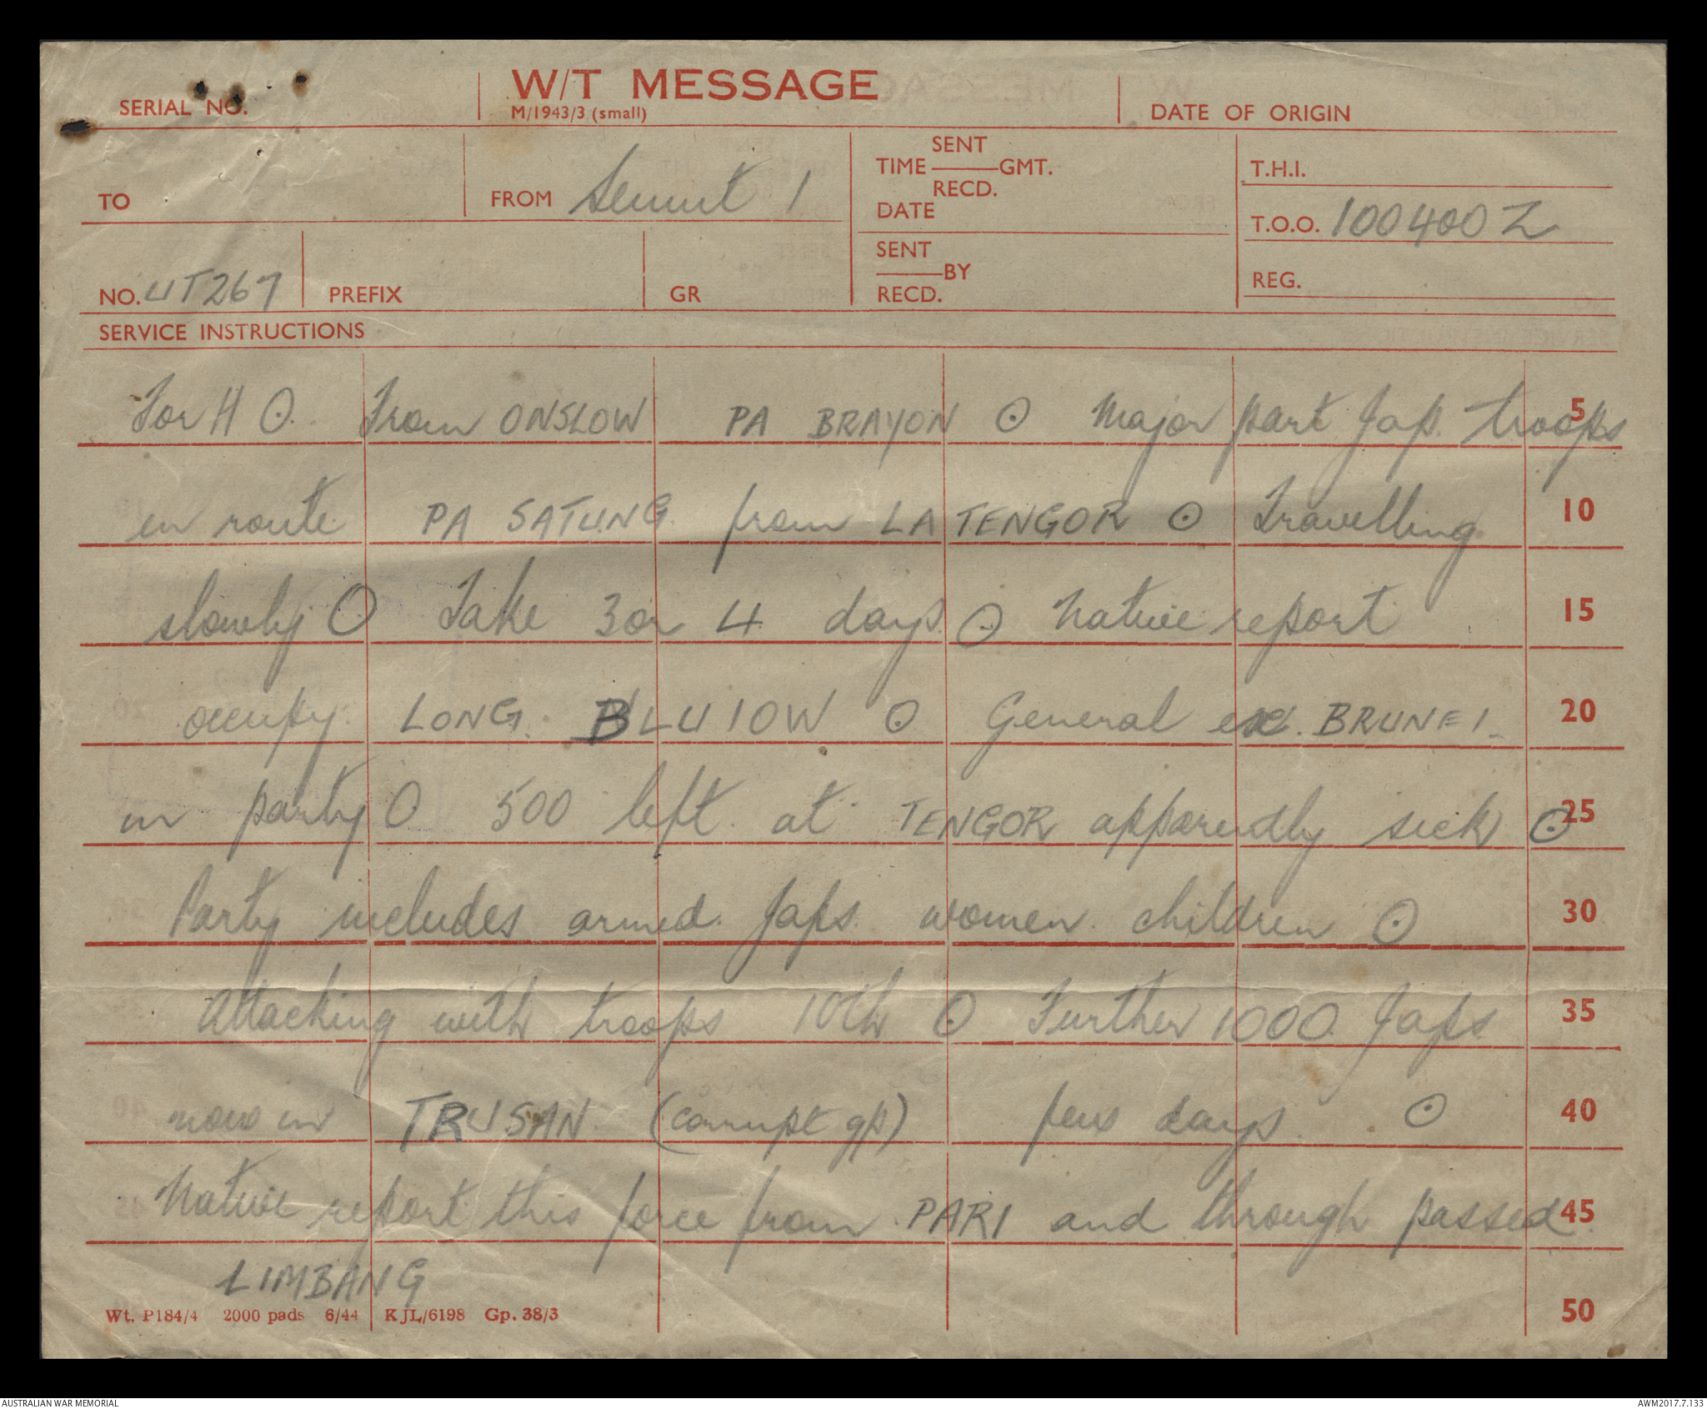 SERIAL NO.
W/T MESSAGE
M/1943/3 (small)
DATE OF ORIGIN
TO
FROM Semut 1
SENT
TIME GMT.
RECD.
DATE
T.H.I.
T.O.O. 100400Z
NO. UT267
PREFIX
GR
SENT
BY
RECD.
REG.
SERVICE INSTRUCTIONS
For H ⊙ From ONSLOW PA BRAYON ⊙ Major part Jap. troops 5
en route PA SATUNG from LA TENGOR ⊙ Travelling 10
slowly ⊙ Take 3 or 4 days ⊙ Native report 15
occupy LONG BLUIOW ⊙ General exc. BRUNEI 20
in party ⊙ 500 left at TENGOR apparently sick ⊙ 25
Party includes armed Japs women children ⊙ 30
Attacking with troops 10th ⊙ Further 1000 Japs 35
now in TRUSAN (corrupt gp) few days ⊙ 40
Native report this force from PARI and through passed 45
LIMBANG
Wt. P184/4 2000 pads 6/44 KJL/6198 Gp. 38/3
50
AUSTRALIAN WAR MEMORIAL
AWM2017.7.133